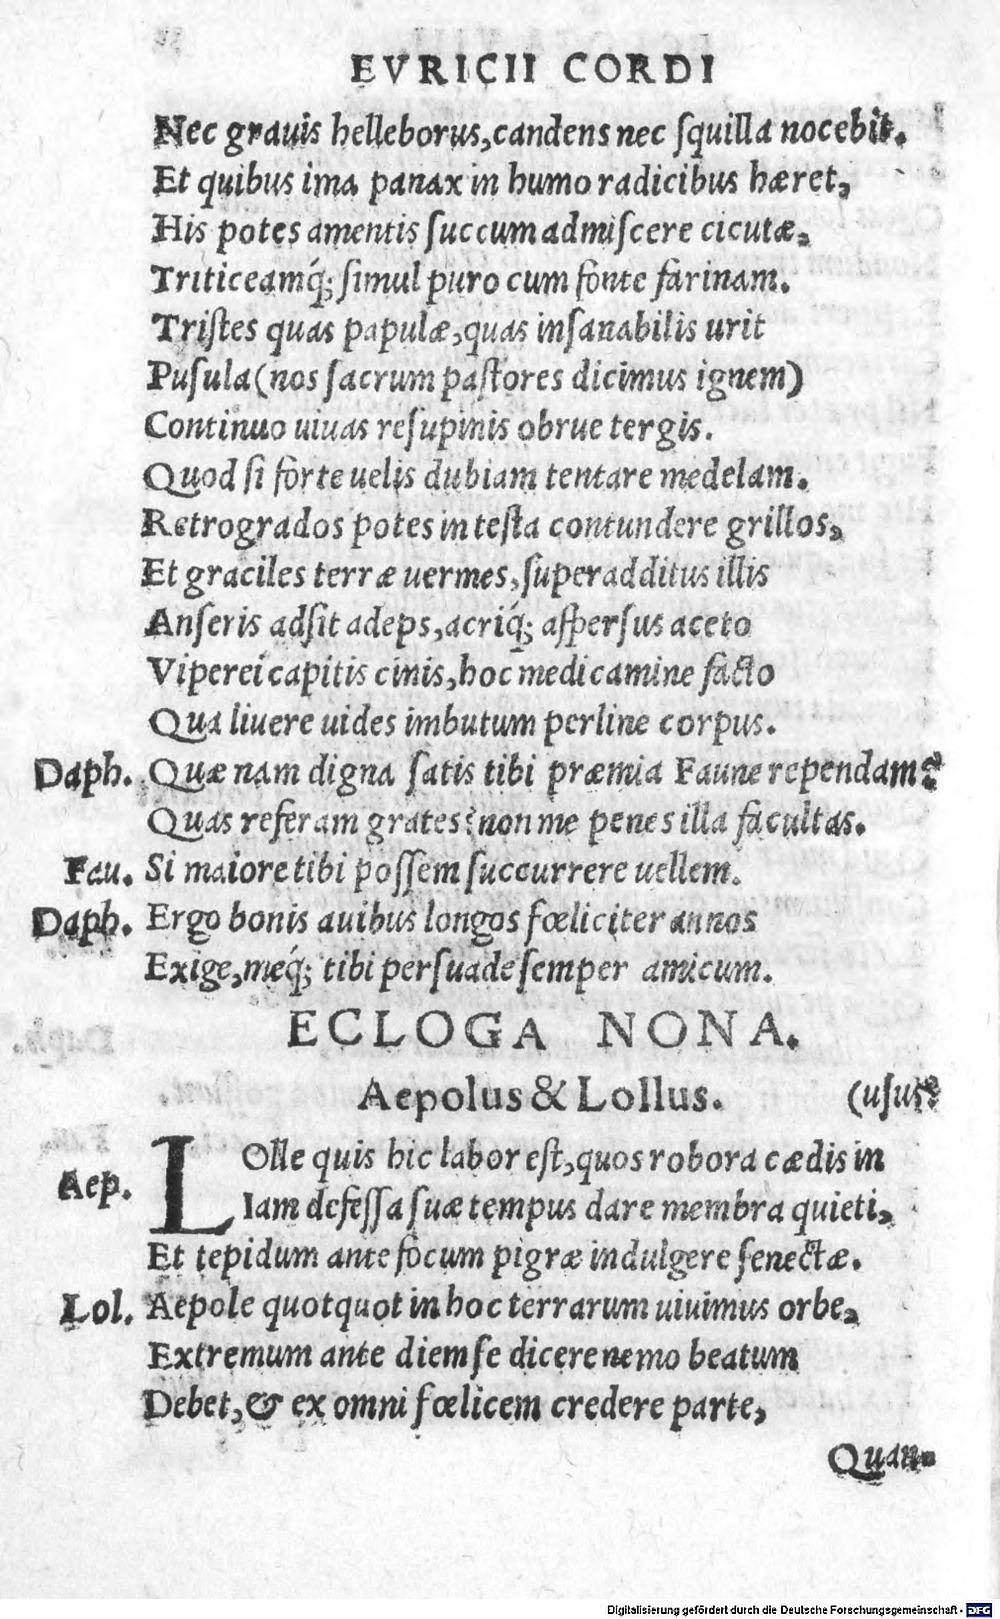 EVRICII CORDI
Nec grauis helleborus, candens nec ſquilla nocebit.
Et quibus ima panax in humo radicibus hæret,
His potes amentis ſuccum admiſcere cicutæ,
Triticeamq́; ſimul puro cum fonte farinam.
Triſtes quas papulæ, quas inſanabilis urit
Puſula (nos ſacrum paſtores dicimus ignem)
Continuo uiuas reſupinis obrue tergis.
Quod ſi forte uelis dubiam tentare medelam.
Retrogrados potes in teſta contundere grillos,
Et graciles terræ uermes, ſuperadditus illis
Anſeris adſit adeps, acriq́; aſperſus aceto
Viperei capitis cinis, hoc medicamine facto
Qua liuere uides imbutum perline corpus.
Daph. Quæ nam digna ſatis tibi præmia Faune rependam?
Quas referam grates? non me penes illa facultas.
Fau. Si maiore tibi poſſem ſuccurrere uellem.
Daph. Ergo bonis auibus longos fœliciter annos
Exige, meq́; tibi perſuade ſemper amicum.
ECLOGA NONA.
Aepolus & Lollus. (uſus?
Aep. LOlle quis hic labor eſt, quos robora cædis in
Iam defeſſa ſuæ tempus dare membra quieti,
Et tepidum ante focum pigræ indulgere ſenectæ.
Lol. Aepole quotquot in hoc terrarum uiuimus orbe,
Extremum ante diem ſe dicere nemo beatum
Debet, & ex omni fœlicem credere parte,
Quan-
Digitalisierung gefördert durch die Deutsche Forschungsgemeinschaft - DFG